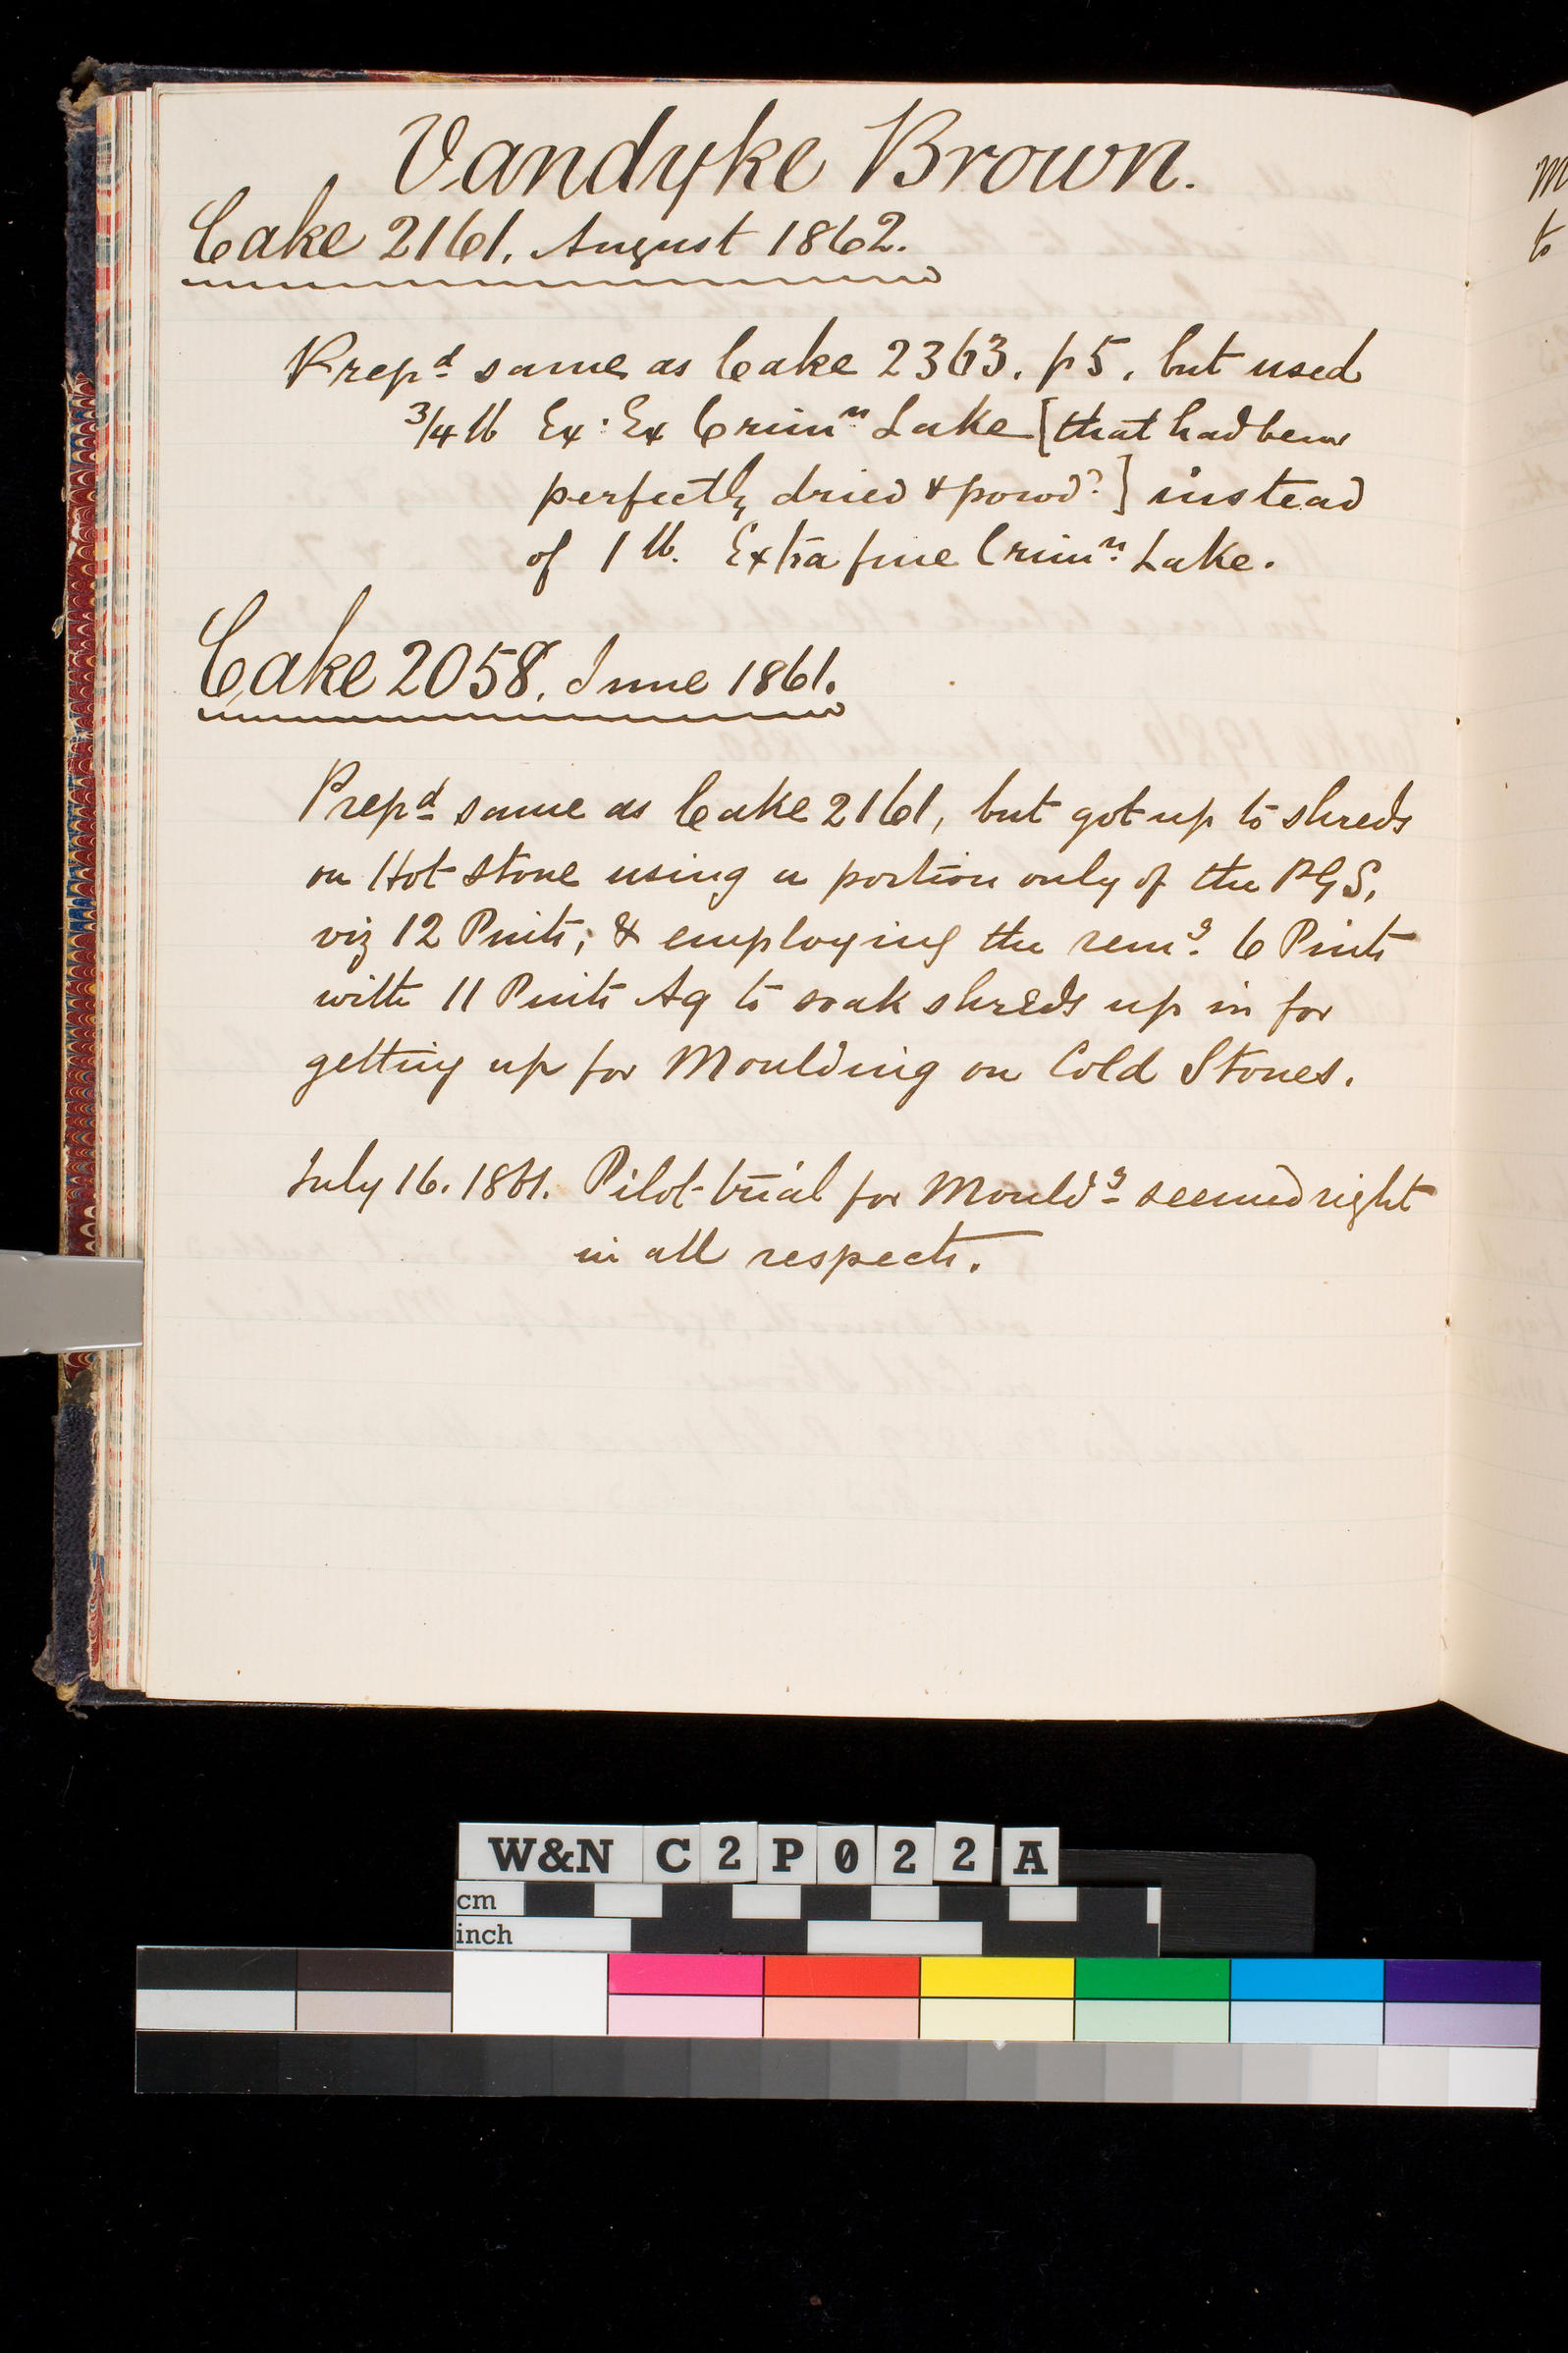 Vandyke Brown.
Cake 2161. August 1862.
Prepd same as Cake 2363. p5. but used
3/4 lb Ex: Ex Crimn Lake [that had been
perfectly dried & powd:] instead
of 1 lb. Extra fine Crimn: Lake.
Cake 2058. June 1861.
Prepd same as Cake 2161, but got up to shreds
on Hot Stone using a portion only of the PGS,
viz 12 Pints; & employing the remg. 6 Pints
with 11 Pints Aq to soak shreds up in for
getting up for Moulding on Cold Stones.
July 16. 1861. Pilot-trial for Mouldg seemed right
in all respects.
M
to
W&N C2P022A
cm
inch